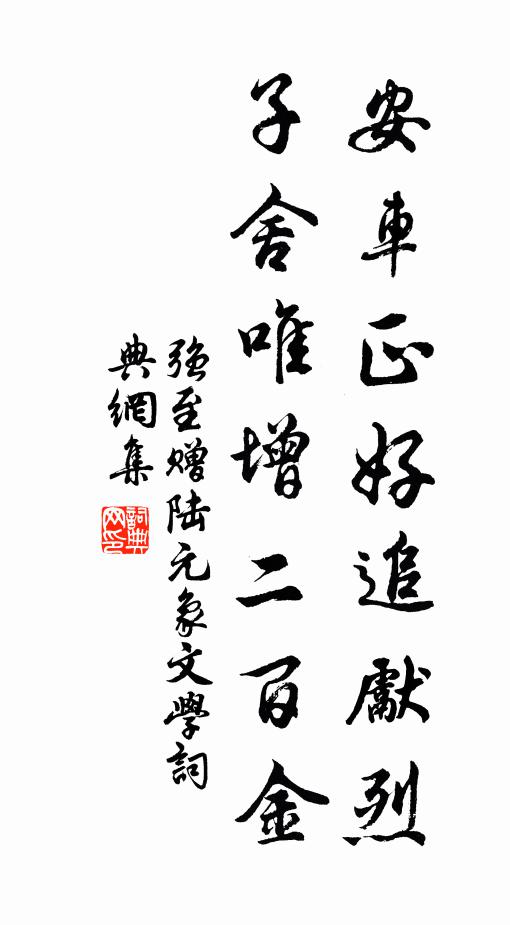 安車正好追獻烈
子舍唯增二百金
強至赠陆元象文學詞
典網集
詞典网印